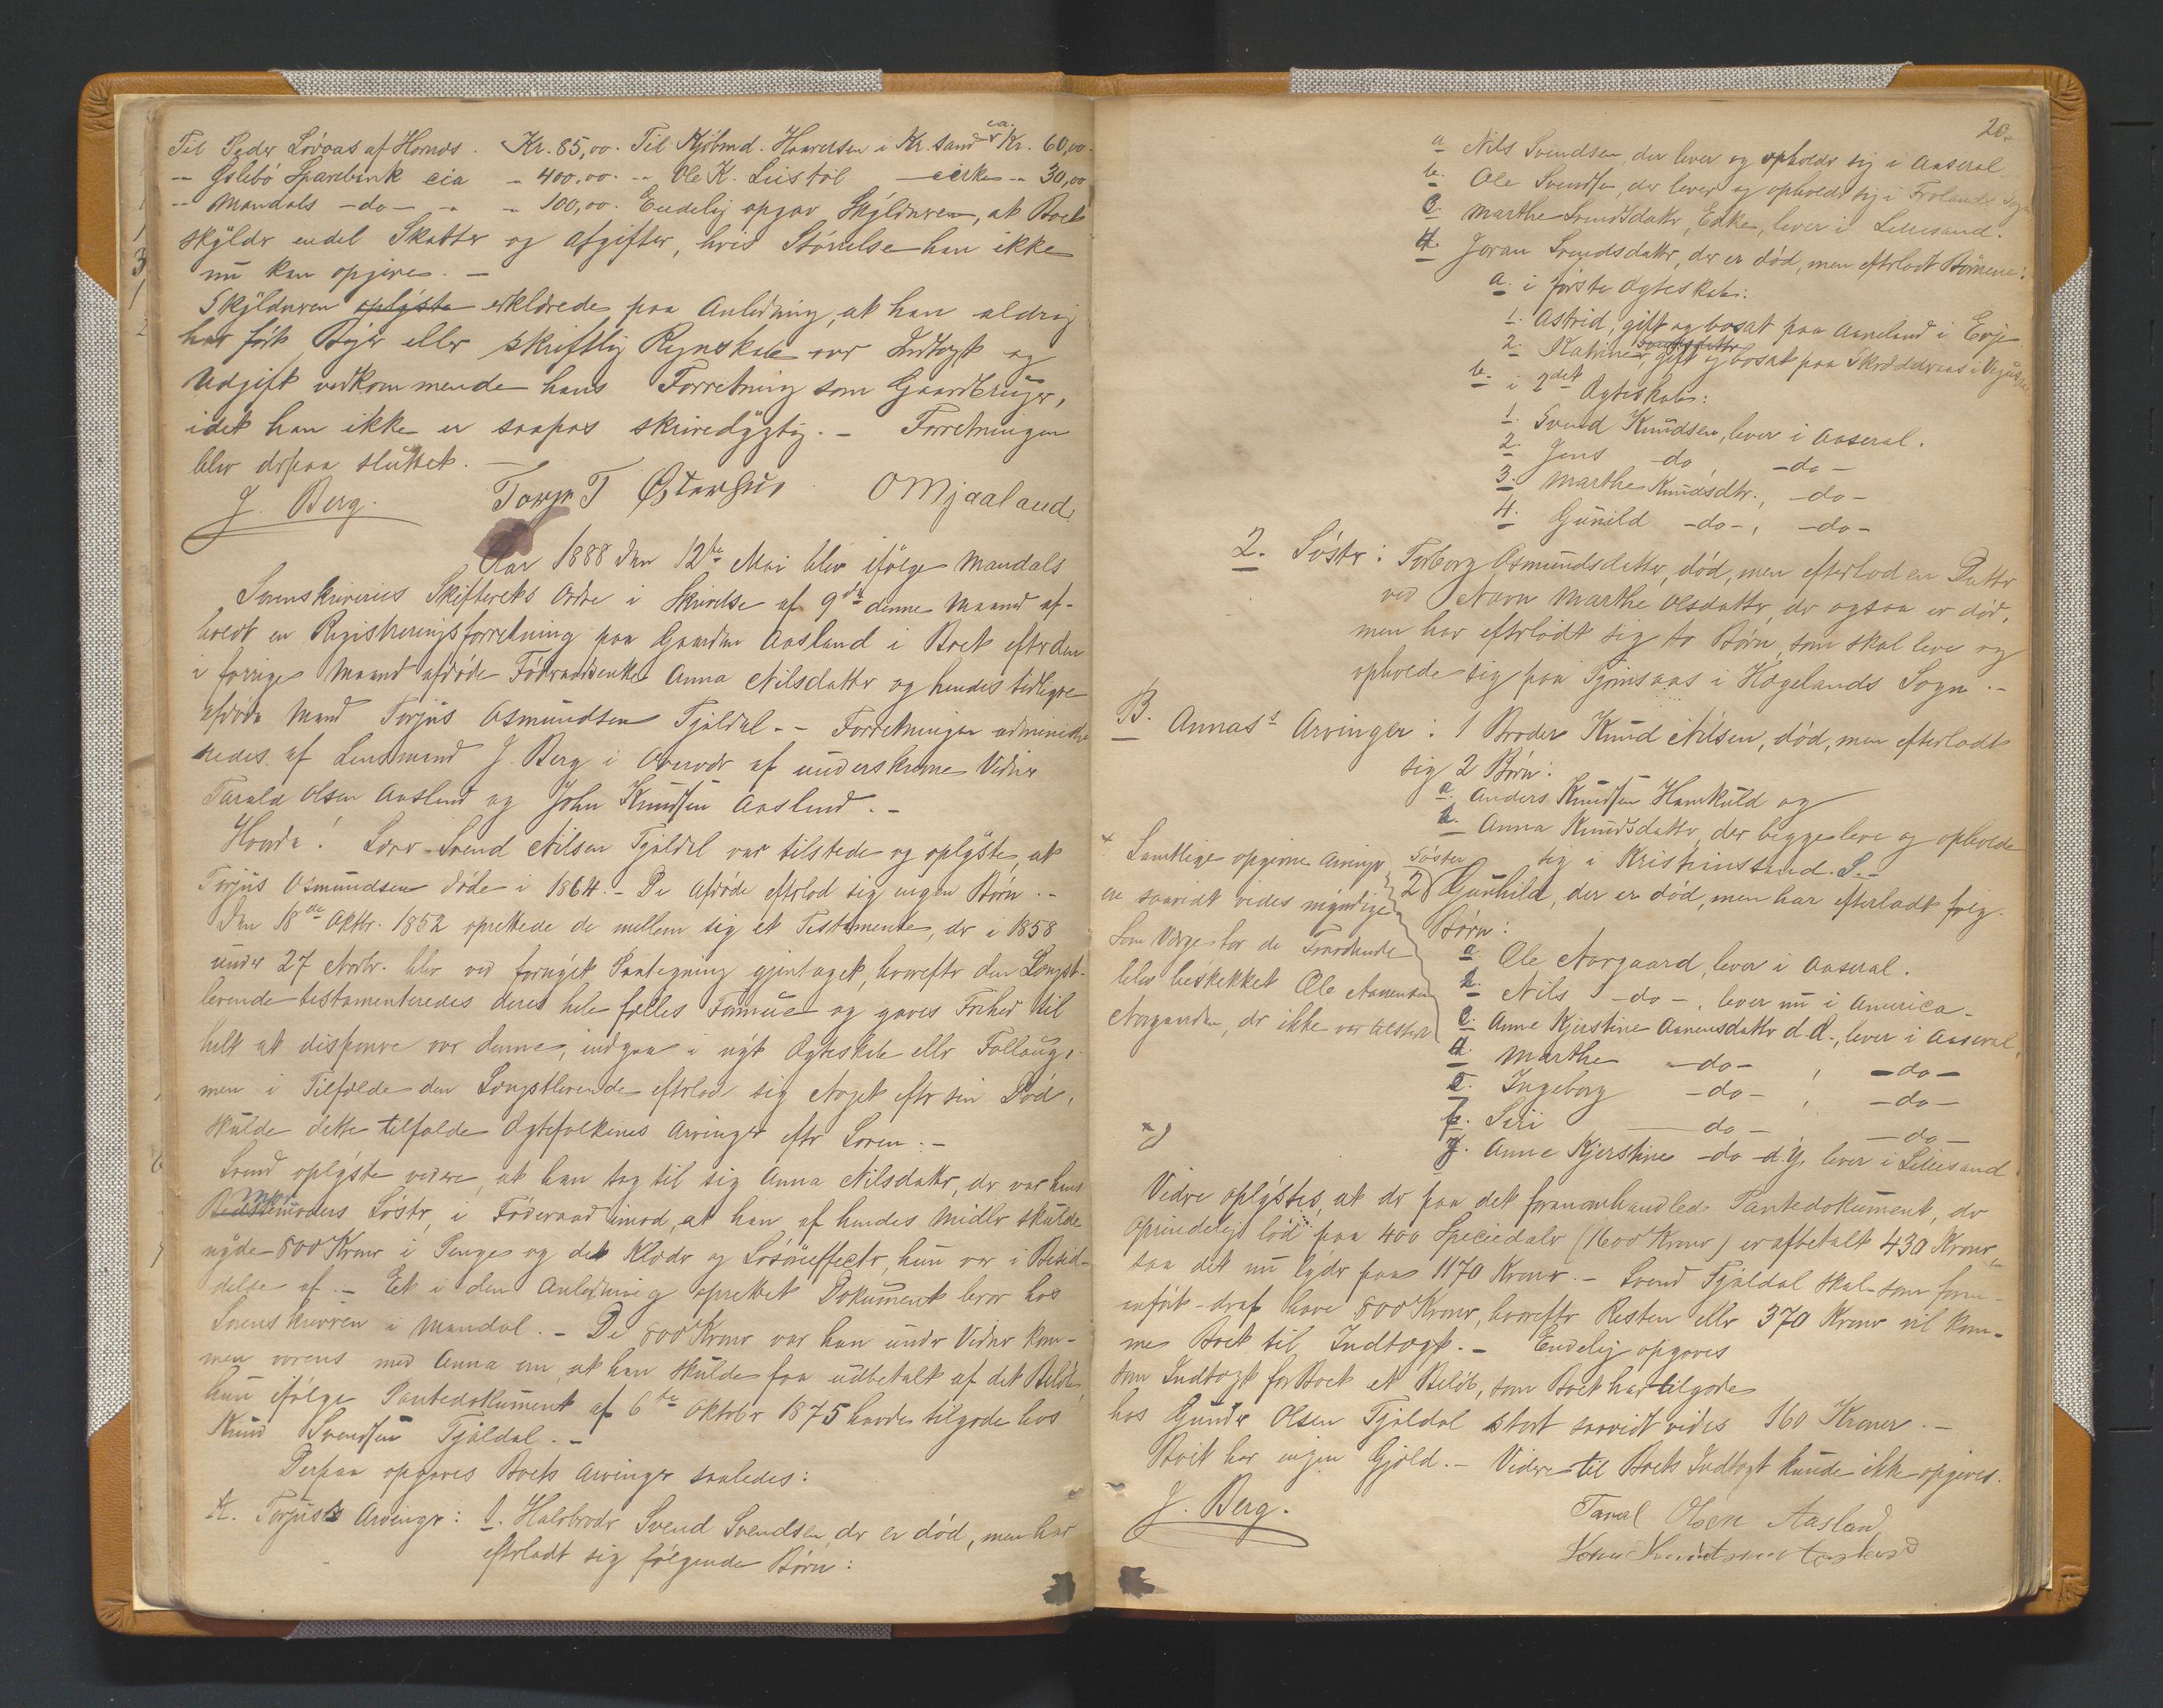 Til Peder Lövaas af Hornds. Kr. 85,00. Til Kjöbmd. Haavorsen i Kr.sand ca. Kr. 60,00.
-- Öslebö Sparebank cia - 400,00. -- Ole K. Listöl cirka - 30,00
-- Mandals -do- - - 100,00. Endelig opgav Skyldneren, at Boet
skylder endel Skatter og Afgifter, hvis Störrelse han ikke
nu kan opgive. -
Skyldneren oplyste erklærede paa Anledning, at han aldrig
har fört Böger eller skriftlig Regnskab over Indtægt og
Udgift vedkommende hans Forretning som Gaardbruger,
idet han ikke er saapas skrivedygtig. - Forretningen
blev derpaa sluttet. -
J. Berg. Torje T OMjaaland
Aar 1888 den 12te Mai blev ifölge Mandals
Sorenskriveries Skifterets Ordre i Skrivelse af 9de denne Maaned af-
holdt en Registreringsforretning paa Gaarden Aasland i Boet efter den
i forrige Maaned afdöde Föderaadsenke Anna Nilsdatter og hendes tidligere
afdöde Mand Torjus Osmundsen Tjaldal. - Forretningen administre
redes af Lensmand J. Berg i Overvær af underskrevne Vidner
Tarald Olsen Aasland og John Knudsen Aasland. -
Hvorda! Svend Nilsen Tjaldal var tilstede og oplyste, at
Torjus Osmundsen döde i 1864. - De Afdöde efterlod sig ingen Börn. -
Den 18de Oktbr. 1852 oprettede de mellem sig et Testamente, der i 1858
under 27 Novbr. blev ved fornyet Paategning gjentaget, hvorefter den Længst-
levende testamenteredes deres hele fælles Formue og gaves Frihed til
helt at disponere over denne, indgaa i nyt Ægteskab eller Föllaug,
men i Tilfælde den Længstlevende efterlod sig Noget efter sin Död,
skulde dette tilfalde Ægtefolkenes Arvinger efter Loven. -
Svend oplyste videre, at han tog til sig Anna Nilsdatter, der var hans
Bedstemoders Mor Söster, i Föderaad imod, at han af hendes Midler skulde
nyde 800 Kroner i Penge og det Klæder og Lösöreffecter, hun var i Besid-
delse af. - Et i den Anledning oprettet Dokument beror hos
Sorenskriveren i Mandal. - De 800 Kroner var han under Vidner kom-
men overens med Anna om, at han skulde faa udbetalt af det Belöb,
hun ifölge Pantedokument af 6te Oktober 1875 havde tilgode hos
Knud Svendsen Tjaldal. -
Derpaa opgaves Boets Arvinger saaledes:
A. Torjus's Arvinger: 1. Halvbroder Svend Svendsen, der er död, men har
efterladt sig fölgende Börn:
20.
a Nils Svendsen, der lever og opholder sig i Aaseral
b. Ole Svendsen, der lever og opholder sig i Frolands Sogn
c. Marthe Svendsdatter, Enke, lever i Lillesand.
d. Joran Svendsdatter, der er död, men efterladt Börnene:
a. i förste Ægteskab:
1. Astrid, gift og bosat paa Aaneland i Evje
2. Katrine Svendsdatter, gift og bosat paa i
b. i 2det Ægteskab:
1. Svend Knudsen, lever i Aaseral.
2. Jens -do -do-
3. Marthe Knudsdtr., -do-
4. Gunild -do-, -do-
2. Söster: Torborg Osmundsdatter, död, men efterlod en Datter
ved Navn Marthe Olsdatter, der ogsaa er död,
men har efterladt sig to Börn, som skal leve og
opholde sig paa Tjomsaas i Hægelands Sogn. -
B. Annas's Arvinger: 1 Broder Knud Nilsen, död, men efterladt
sig 2 Börn:
a. Anders Knudsen Homkuld og
b. Anna Knudsdatter, der begge leve og opholde
sig i Kristianssand. S. -
+ Samtlige opgivne Arvinger
ere saavidt vides myndige.
Som Værge for de Fraværende
blev beskikket Ole Aanensen
Norgaarden, der ikke var tilstede
2) Söster Gunhild, der er död, men har efterladt fölg.
Börn:
a. Ole Norgaard, lever i Aaseral.
b. Nils -do-, lever nu i America.
c. Anne Kjerstine Aanensdatter d.æ., lever i Aaseral.
d. Marthe -do- , -do-
e. Ingeborg -do- , -do-
f. Siri -do- -do-
g. Anne Kjerstine -do- d.y. lever i Lillesand
+)
Videre oplystes, at der paa det fornævnhandlede Pantedokument, der
oprindeligt löd paa 400 Speciedaler (1600 Kroner) er afbetalt 430 Kroner,
saa det nu lyder paa 1170 Kroner. - Svend Tjaldal skal - som foran
anfört - deraf have 800 Kroner, hvorefter Resten eller 370 Kroner vil kom-
me Boet til Indtægt. - Endelig opgaves
som Indtægt for Boet et Belöb, som Boet har tilgode
hos Gunder Olsen Tjaldal stort saavidt vides 160 Kroner. -
Boet har ingen Gjæld. - Videre til Boets Indtægt kunde ikke opgives.
J. Berg. Taral Olsen Aasland
John Knudtsen Aasland